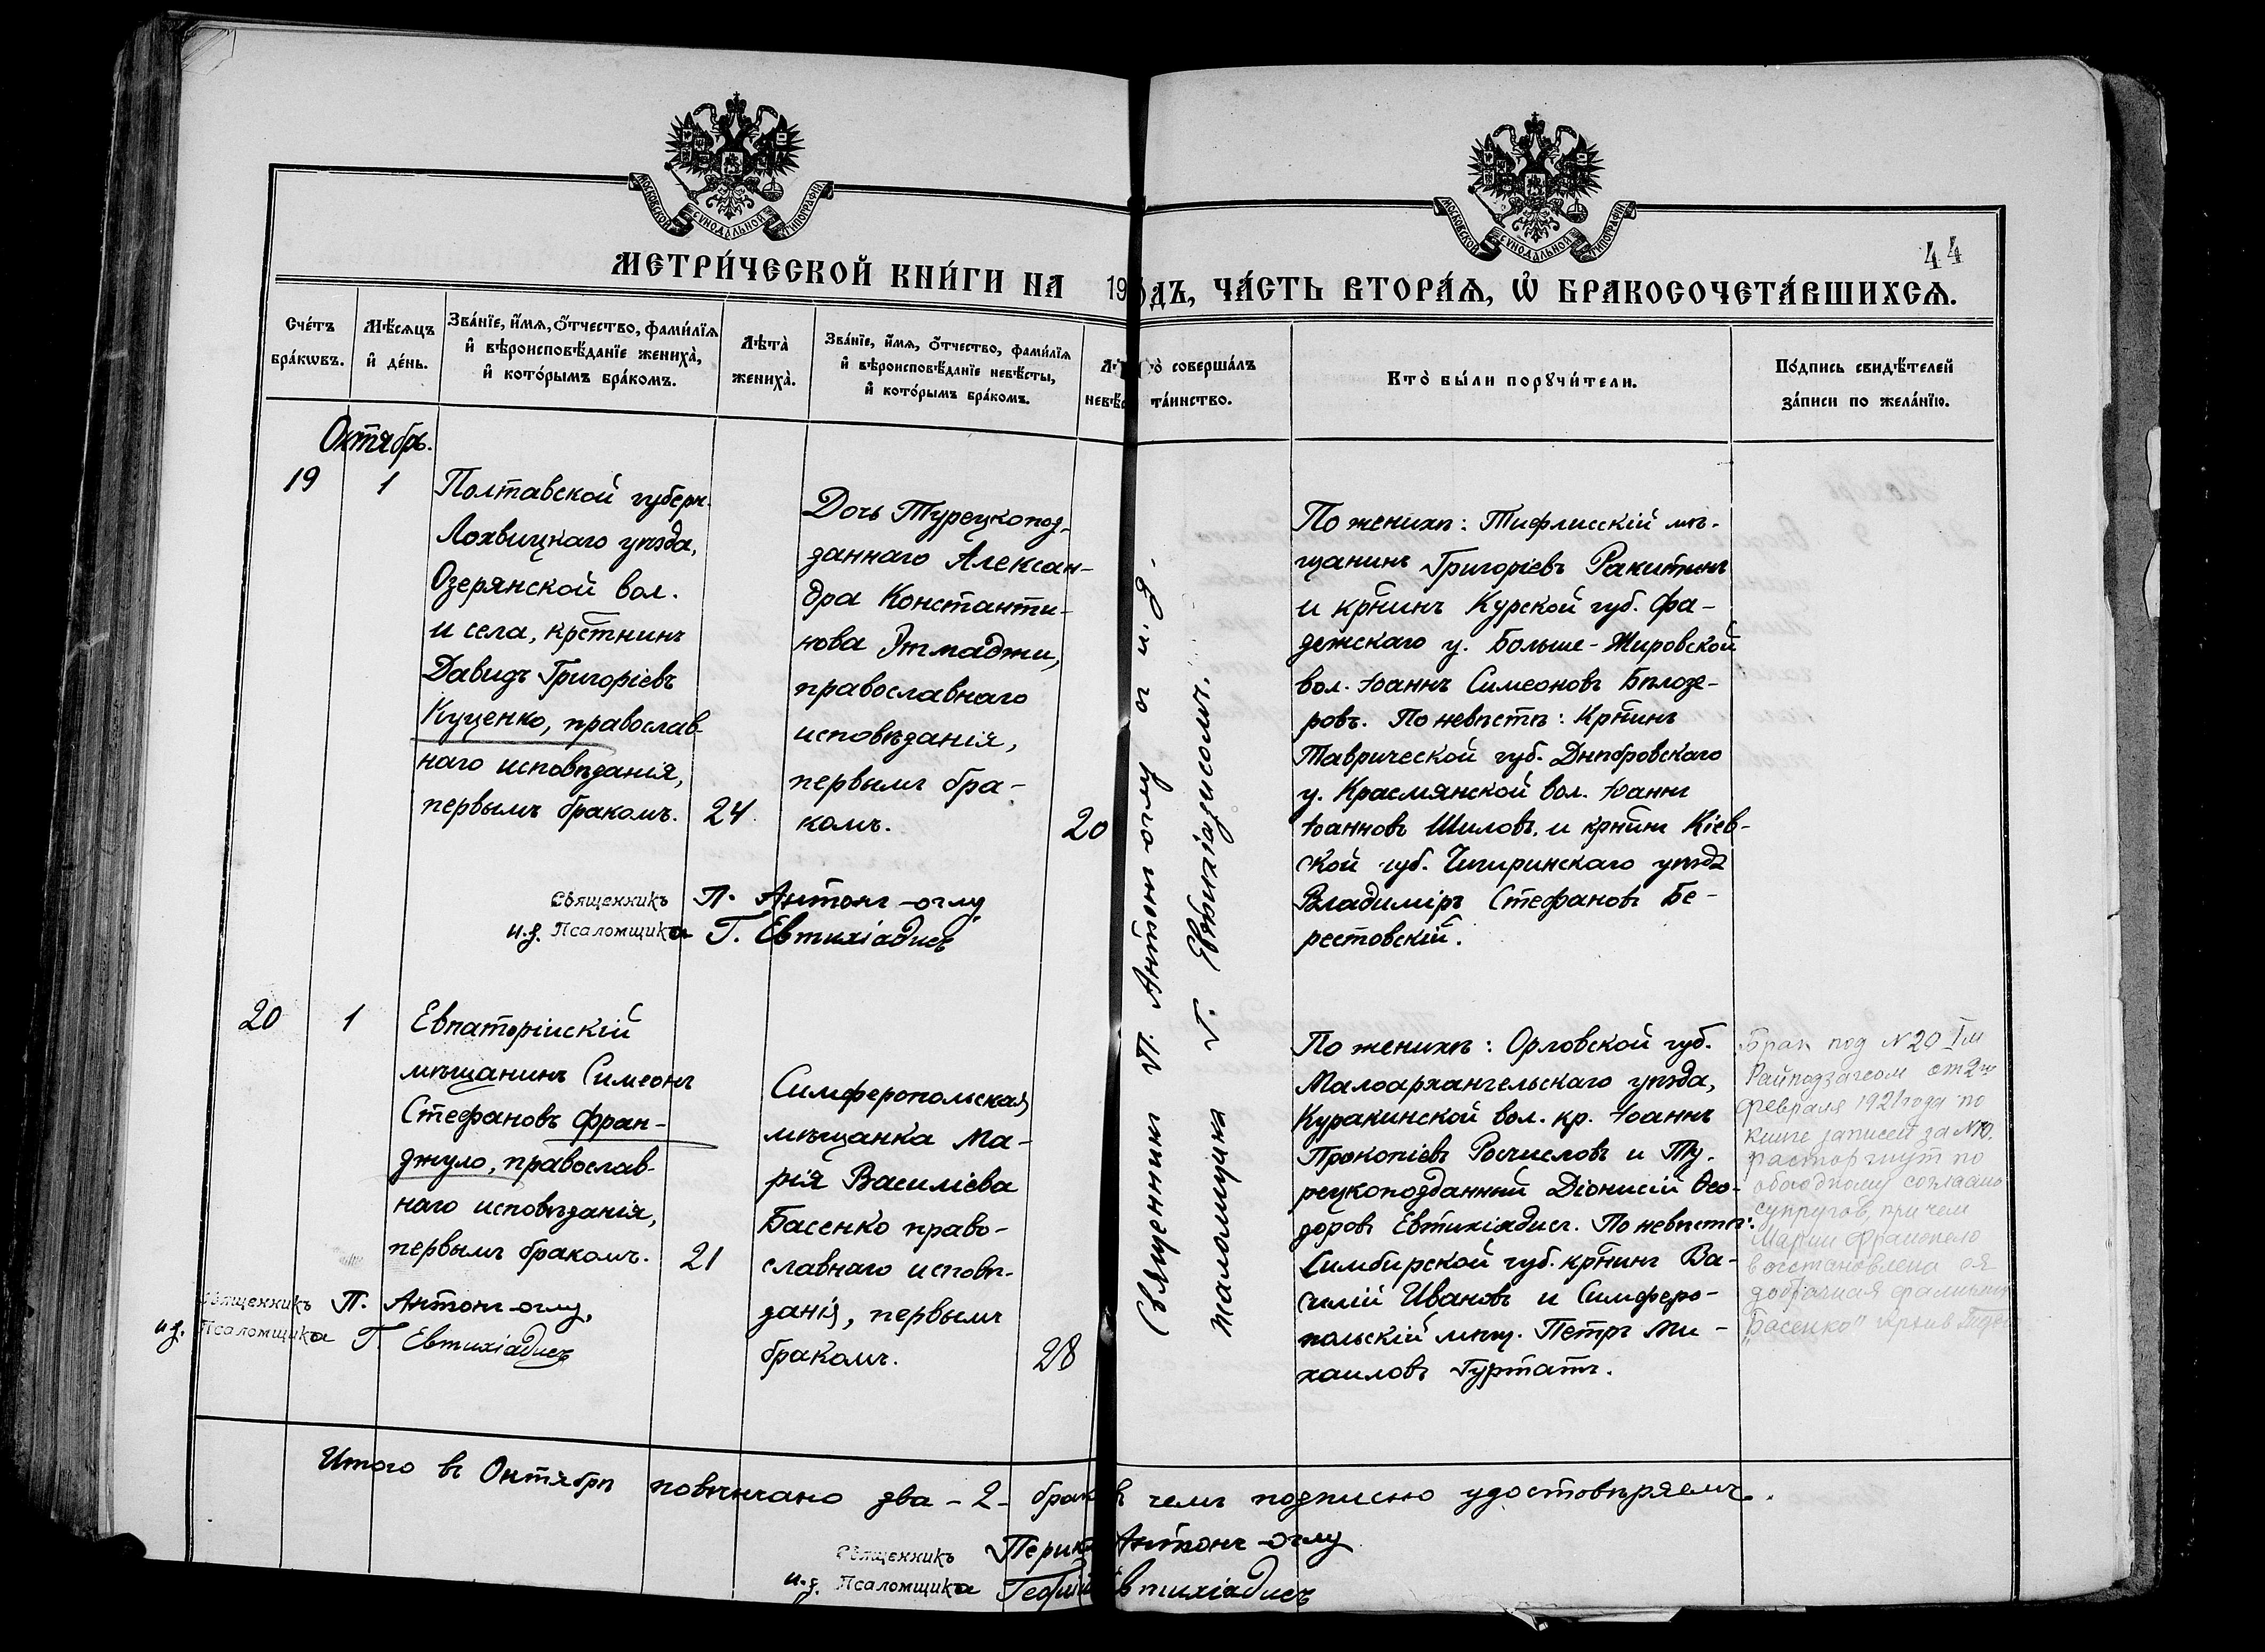 МОСКОВСКОЙ СѴНОДАЛЬНОЙ ТИПОГРАФІИ
МОСКОВСКОЙ СѴНОДАЛЬНОЙ ТИПОГРАФІИ
44
МЕТРИ́ЧЕСКОЙ КНИ́ГИ НА 19
ОДЪ, ЧА́СТЬ ВТОРА́Ѧ, Ѽ БРАКОСОЧЕТА́ВШИХСѦ.
Сче́тъ
бра́кѡвъ.
Мѣ́сяцъ
и҆ де́нь.
Зва́нїе, и҆́мя, ѻ҆́тчество, фами́лїя
и҆ вѣроисповѣ́данїе жениха̀,
и҆ кото́рымъ бра́комъ.
Лѣта̀
жениха̀.
Зва́нїе, и҆́мя, ѻ҆́тчество, фами́лїя
и҆ вѣроисповѣ́данїе невѣ́сты,
и҆ кото́рымъ бра́комъ.
то̀ соверша́лъ
та́инство.
Кто̀ бы́ли порꙋчи́тели.
По́дпись свидѣ́телей
за́писи по жела́нїю.
Октябрь.
19
1
Полтавской губерн.
Лохвицкаго уѣзда,
Озерянской вол.
и села, крстнинъ
Давидъ Григоріевъ
Куценко, православ-
наго исповѣданія,
первымъ бракомъ.
24
Дочь Турецкопод-
даннаго Алексан-
дра Константи-
нова Этмаджи,
православнаго
исповѣданія,
первымъ бра-
комъ.
20
Священникъ П. Антонъ-оглу и и. д.
псаломщика Г. Евтихіадисомъ.
По женихѣ: Тифлисскій мѣ-
щанинъ Григоріевъ Ракитинъ
и крнинъ Курской губ. Фа-
дежскаго у. Больше-Жировской
вол. Іоаннъ Симеоновъ Бѣлозе-
ровъ. По невѣстѣ: Крнинъ
Таврической губ. Днѣпровскаго
у. Красмянской вол. Іоаннъ
Іоанновъ Шиловъ, и крнинъ Кіев-
ской губ. Чигиринскаго уѣзда
Владиміръ Стефановъ Бе-
рестовскій.
Священникъ П. Антонъ-оглу
и. д. Псаломщика Г. Евтихіадисъ
20
1
Евпаторійскій
мѣщанинъ Симеонъ
Стефановъ Фран-
джуло, православ-
наго исповѣданія,
первымъ бракомъ.
21
Симферопольская
мѣщанка Ма-
рія Василіева
Басенко право-
славнаго исповѣ-
данія, первымъ
бракомъ.
28
По женихѣ: Орловской губ.
Малоархангельскаго уѣзда,
Куракинской вол. кр. Іоаннъ
Прокопіевъ Росчисловъ и Ту-
рецкоподданный Діонисій Ѳео-
доровъ Евтихіадисъ. По невѣстѣ:
Симбирской губ. крнинъ Ва-
силій Ивановъ и Симферо-
польскій мѣщ. Петръ Ми-
хаиловъ Гуртатъ.
Брак под №20 Iм
Райподзагсом от 2го
февраля 1921 года по
книге записей за №10.
расторгнут по
обоюдному согласию
супругов, при чем
Марии
восстановлена ея
добрачная фамилия
"Басенко"
Священникъ П. Антонъ-оглу,
и. д. Псаломщика Г. Евтихіадисъ
Итого въ Октябрѣ повѣнчано два -2- брак въ чемъ подписью удостовѣряемъ.
Священникъ Перик Антонъ-оглу
и. д. Псаломщика Евтихіадисъ